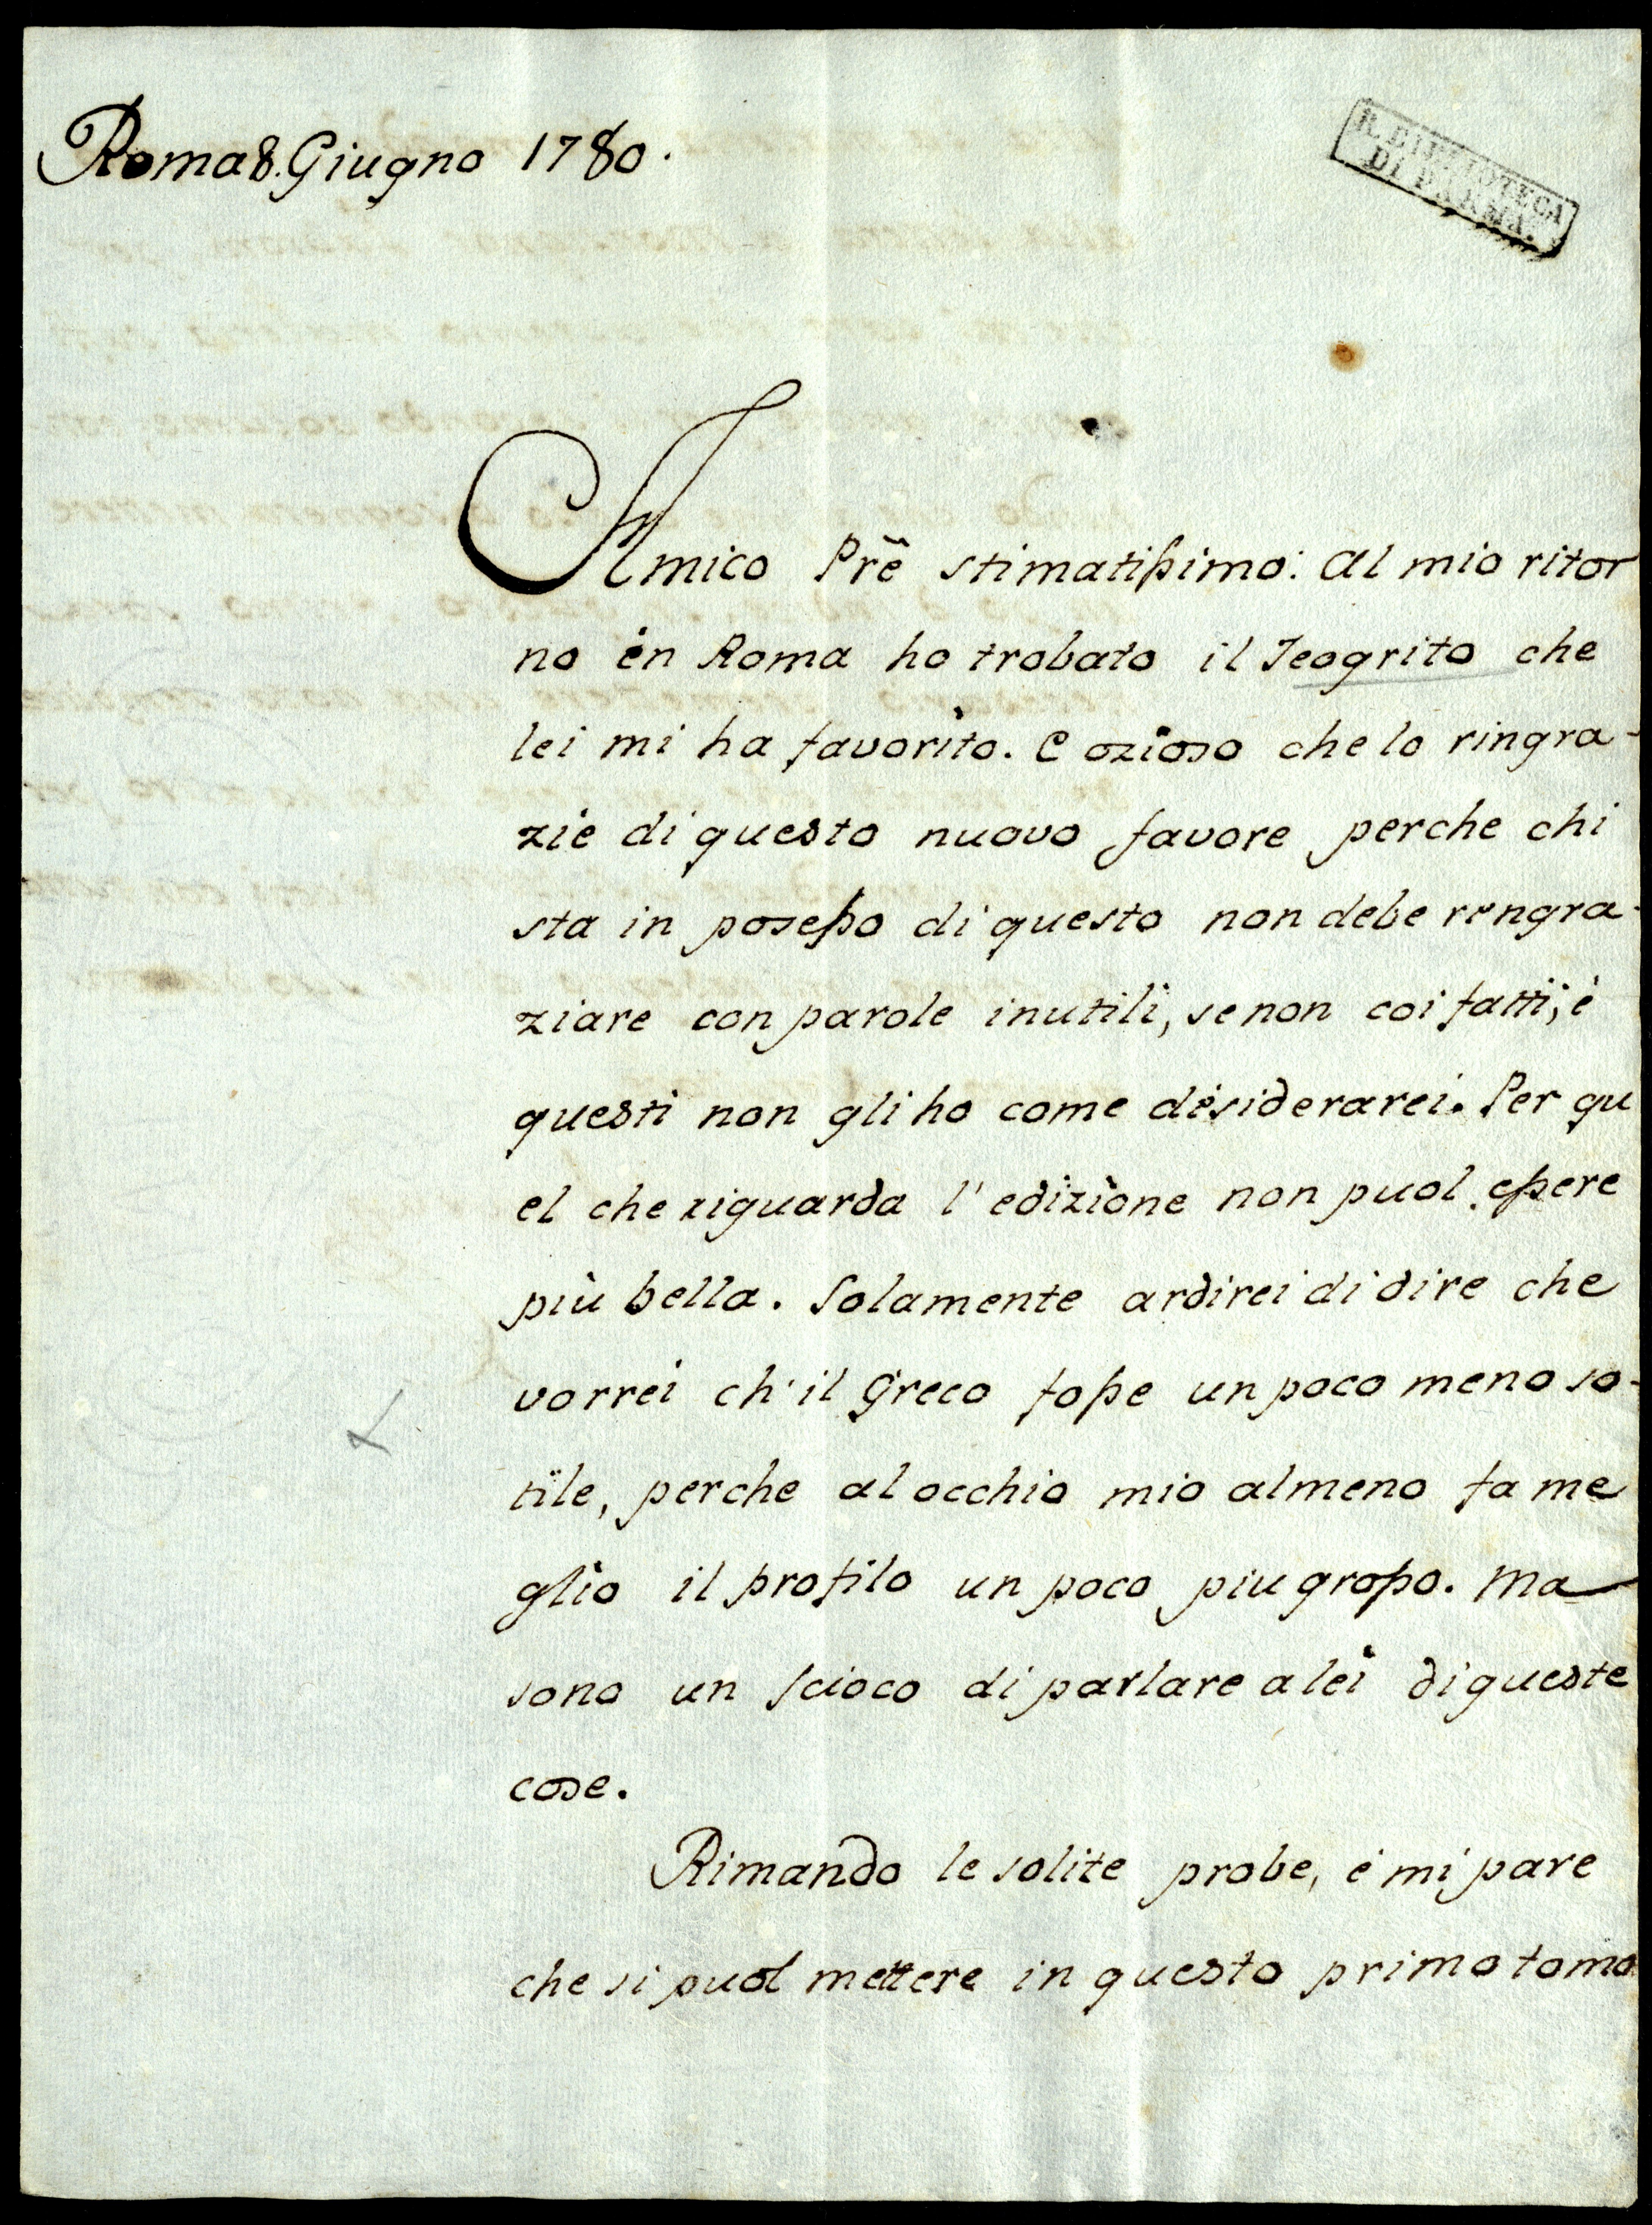 Roma 8. Giugno 1780.
R. BIBLIOTECA
DI PARMA.
Amico Prẽ stimatissimo: Al mio ritor
no en Roma ho trobato il Teogrito che
lei mi ha favorito. E ozioso che lo ringra-
zie di questo nuovo favore perche chi
sta in posesso di questo non debe rengra-
ziare con parole inutili, se non coi fatti, è
questi non gli ho come desiderarei. Per qu
el che riguarda l'edizione non puol essere
più bella. Solamente ardirei di dire che
vorrei ch'il Greco fosse un poco meno so-
tile, perche al occhio mio almeno fa me
glio il profilo un poco piu grosso. Ma
sono un scioco di parlare a lei di queste
cose.
Rimando le solite probe, é mi pare
che si puol mettere in questo primo tomo